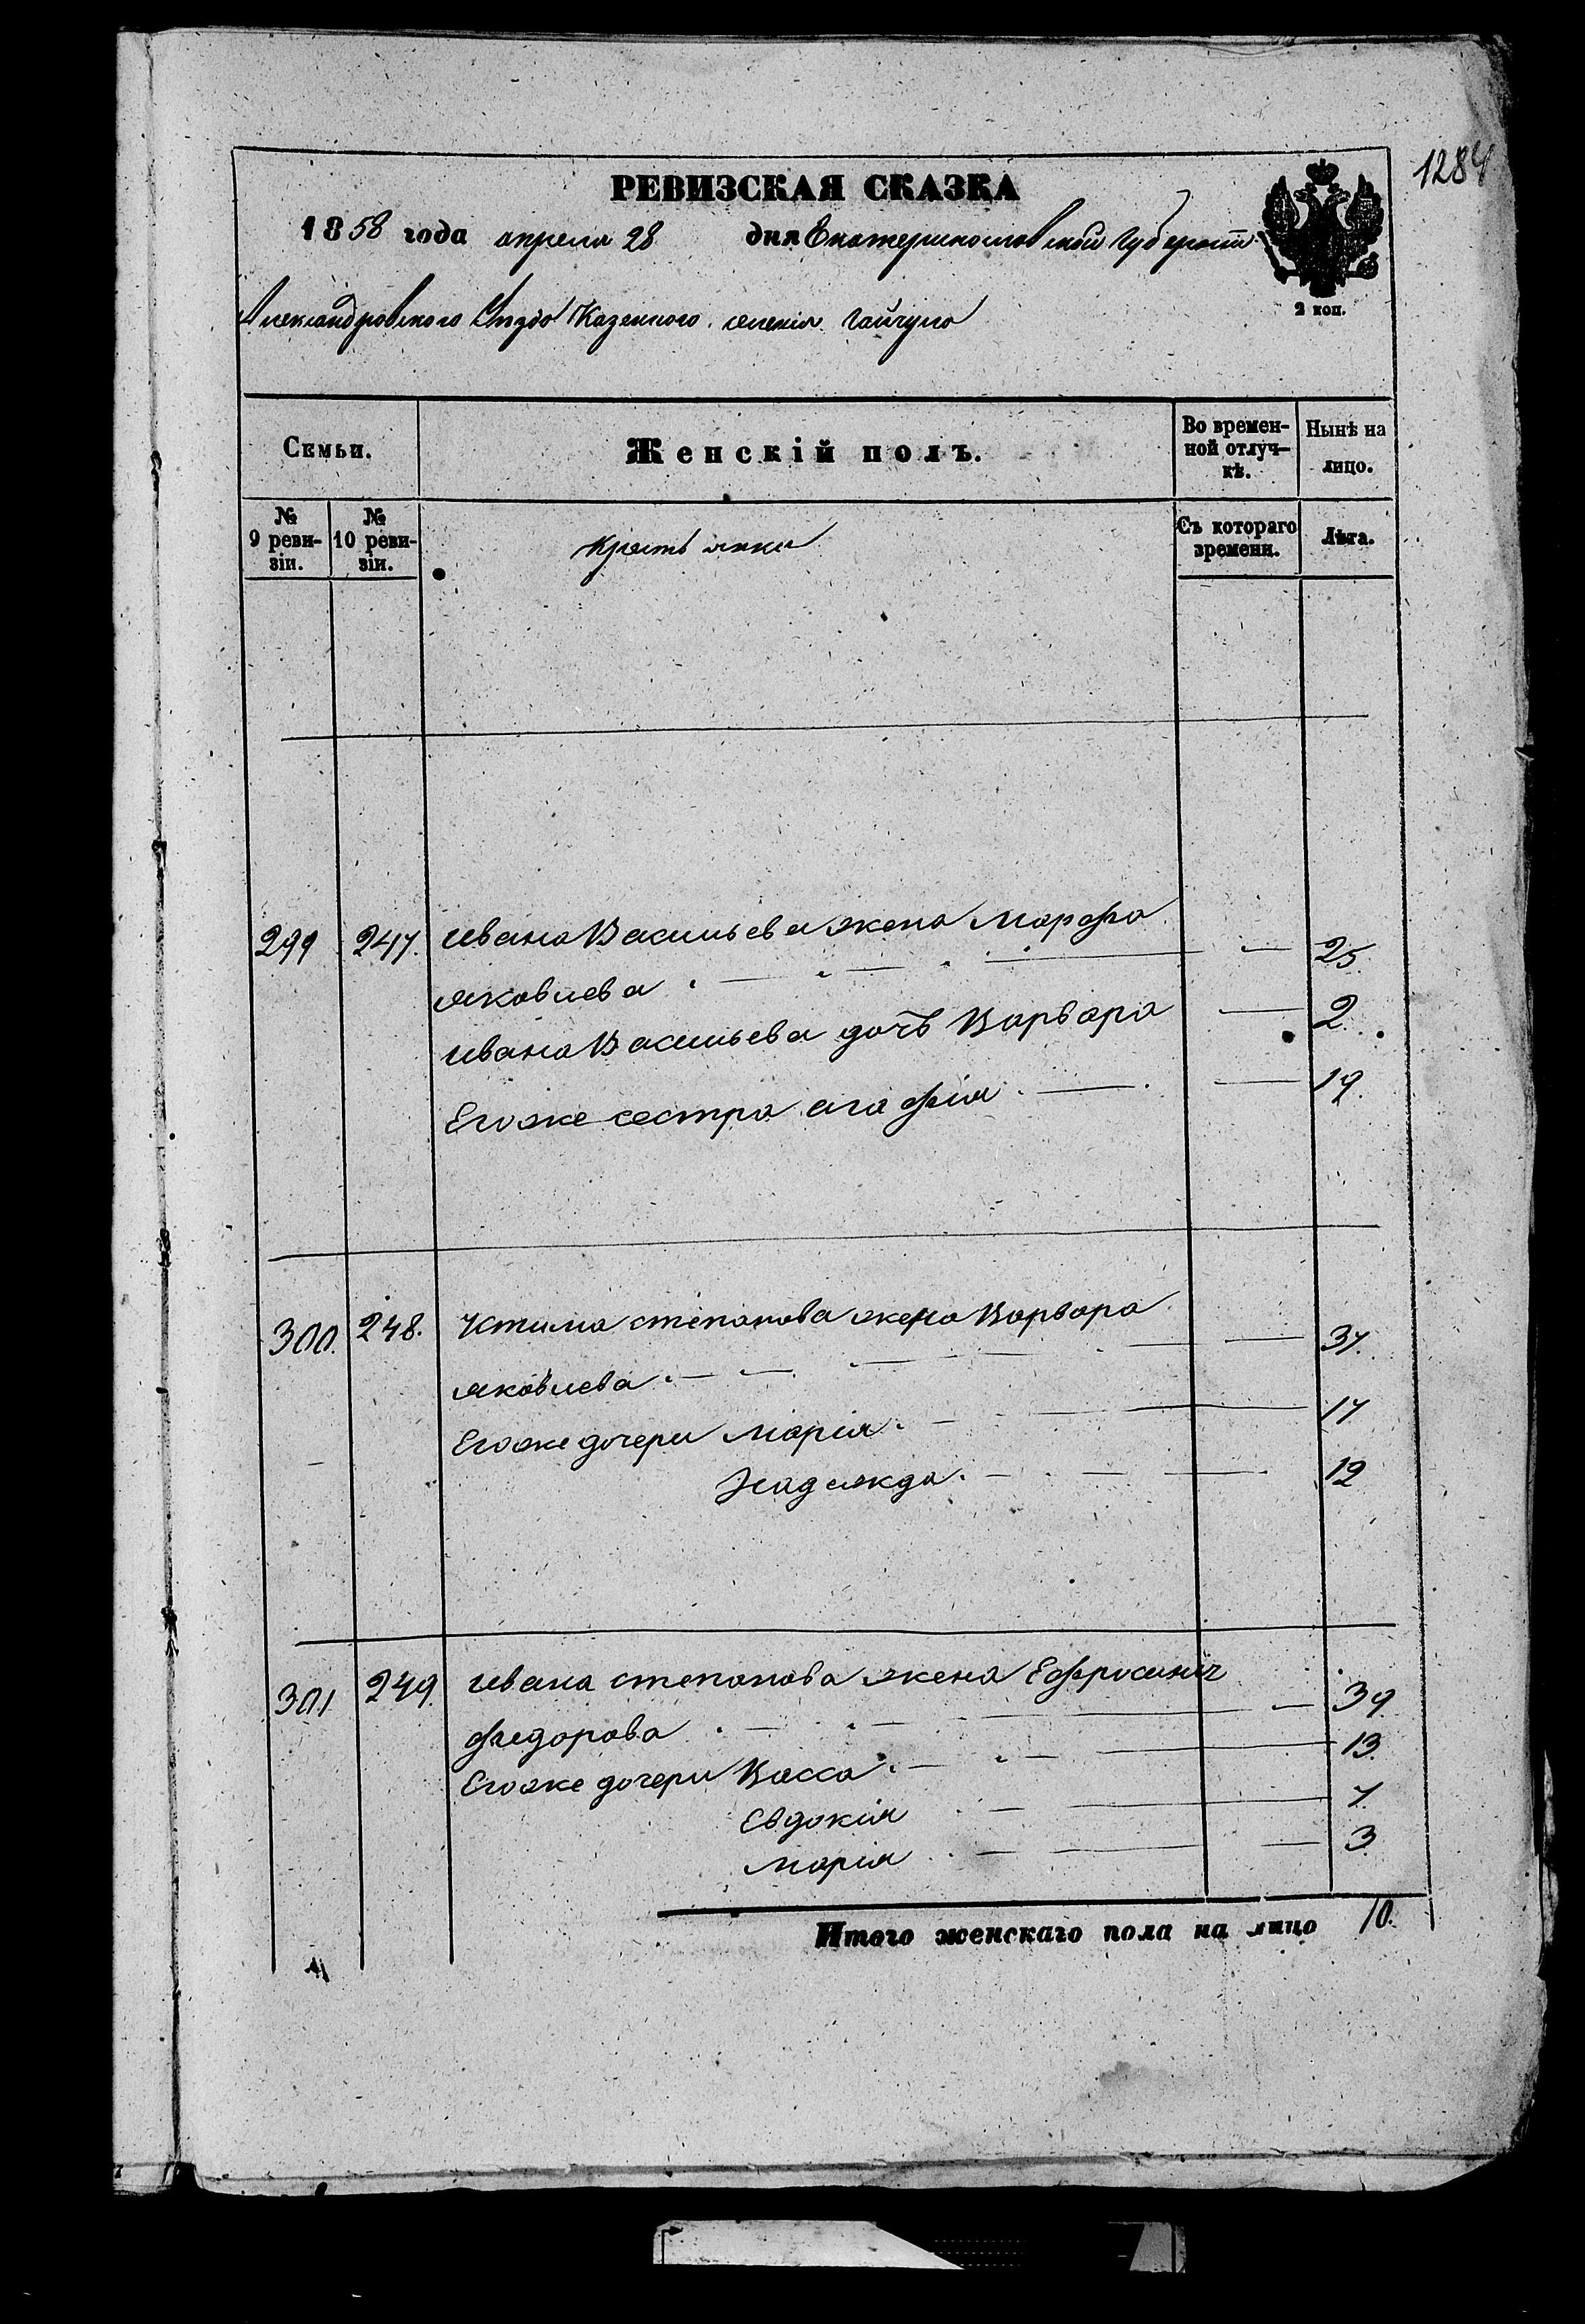 1284
РЕВИЗСКАЯ СКАЗКА
1858 года апреля 28 дня Екатеринославской Губернии
2 коп.
Александровского Уезда Казенного селенія Гайчула
Семьи.
Женскій полъ.
Во времен-
ной отлуч-
кѣ.
Нынѣ на
лицо.
№
9 реви-
зіи.
№
10 реви-
зіи.
Крестьянки
Съ котораго
времени.
Лѣта.
299 247. Ивана Васильева жена Марфа
Яковлева 25
Ивана Васильева дочь Варвара 2
Егоже сестра Агафія 19
300. 248. Устима Степанова жена Варвара
Яковлева 37
Егоже дочери Марія 17
Надежда 12
301 249. Ивана Степанова жена Ефросинія
Федорова 39
Егоже дочери Васса 13
Евдокія 7
Марія 3
Итого женскаго пола на лицо 10.